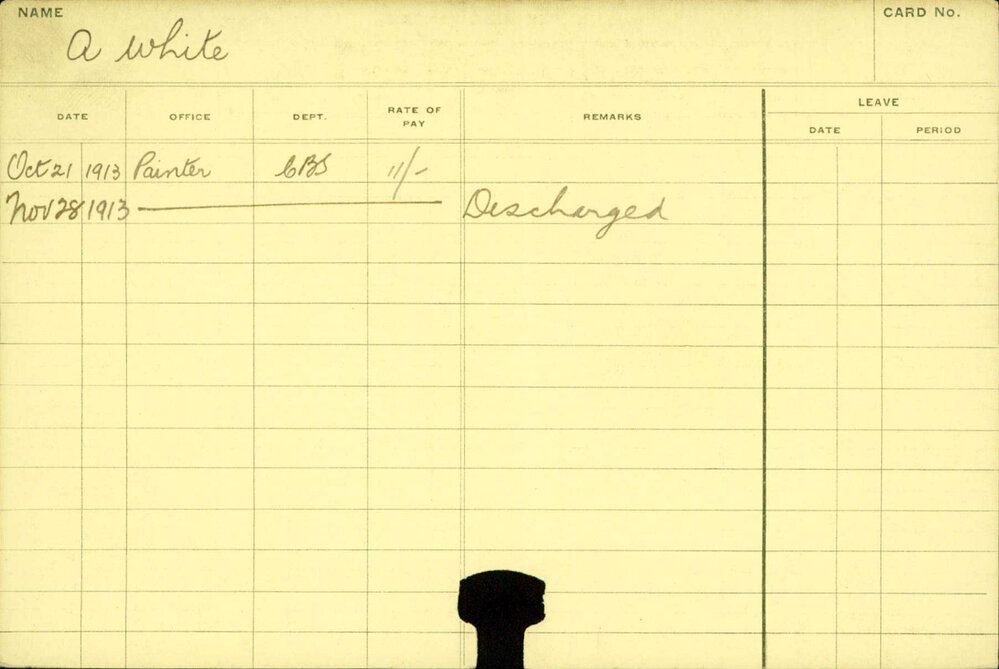 NAME
A White
CARD No.
LEAVE
DATE OFFICE DEPT. RATE OF PAY REMARKS DATE PERIOD
Oct 21 1913 Painter CBS 11/-
Nov 28 1913 — Discharged